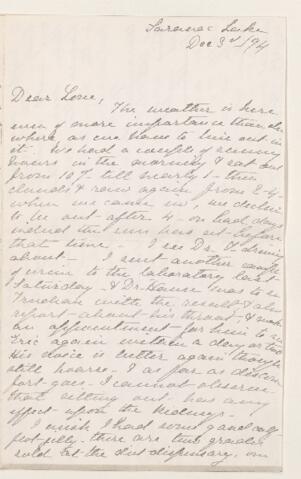 Saranac Lake
Dec 3d /94
Dear Love,
The weather is here
even of more importance than else
where as one has to live out in
it. We had a couple of sunny
hours in the morning & sat out
from 10 till nearly 1 - then
clouds & raw again from 2-4
when we came in, we decline
to be out after 4 - on bad days
indeed the sun has set before
that time - I see Dr. T driving
about - I sent another sample
of urine to the laboratory last
Saturday - & Dr House was to see
Trudeau with the result & also
report about his throat & make
an appointment for him to see
Eric again within a day or two
His voice is better again though
still hoarse - & as far as
goes - I cannot observe
that sitting out has any
effect upon the
I wish I had some good
jelly - there are two grades
sold at the diet dispensary, one